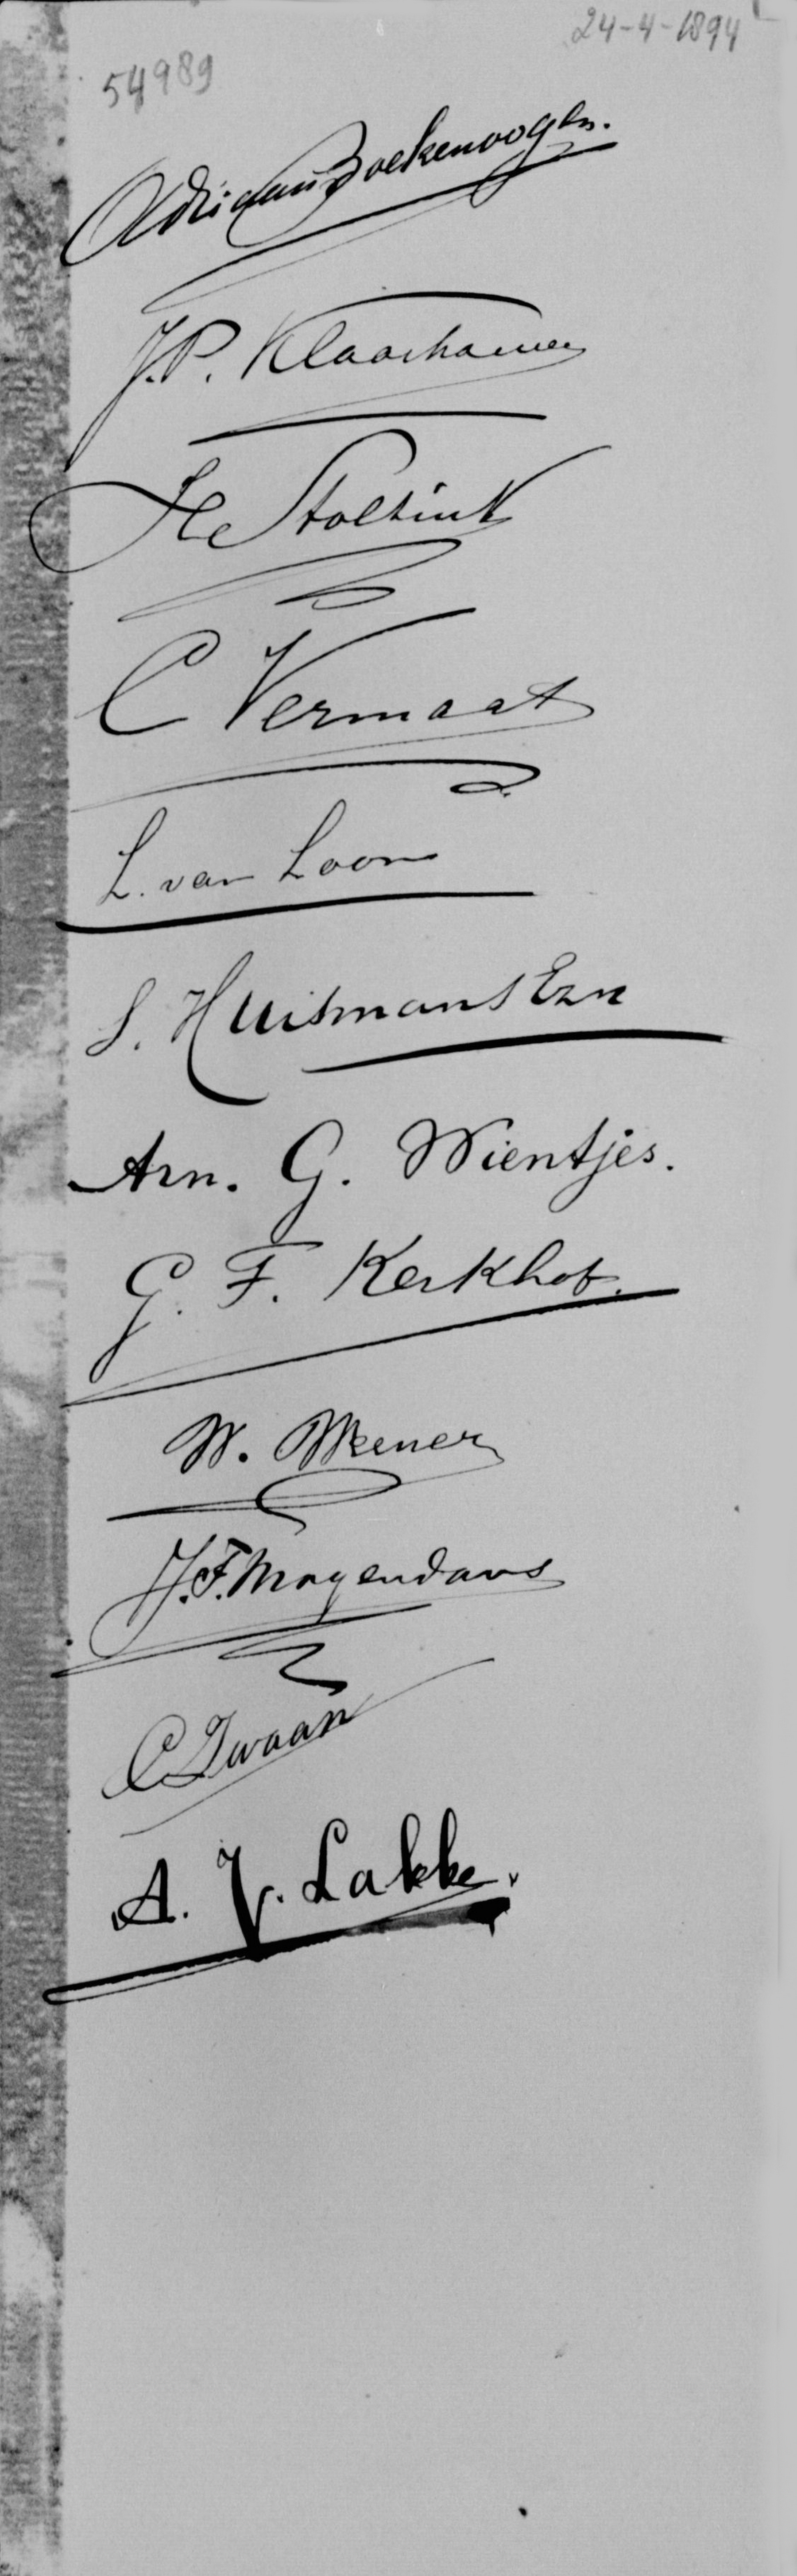 24-4-1894
54989
Adriaan Boekenoogen.
J.P. Klaarhamer
H Stoltink
C Vermaat
L. van Loon
S. Huismans Ezn
Arn. G. Wientjes.
G. F. Kerkhof.
W.
J.F. Mogendans
C Zwaan
A. V. Lakke.